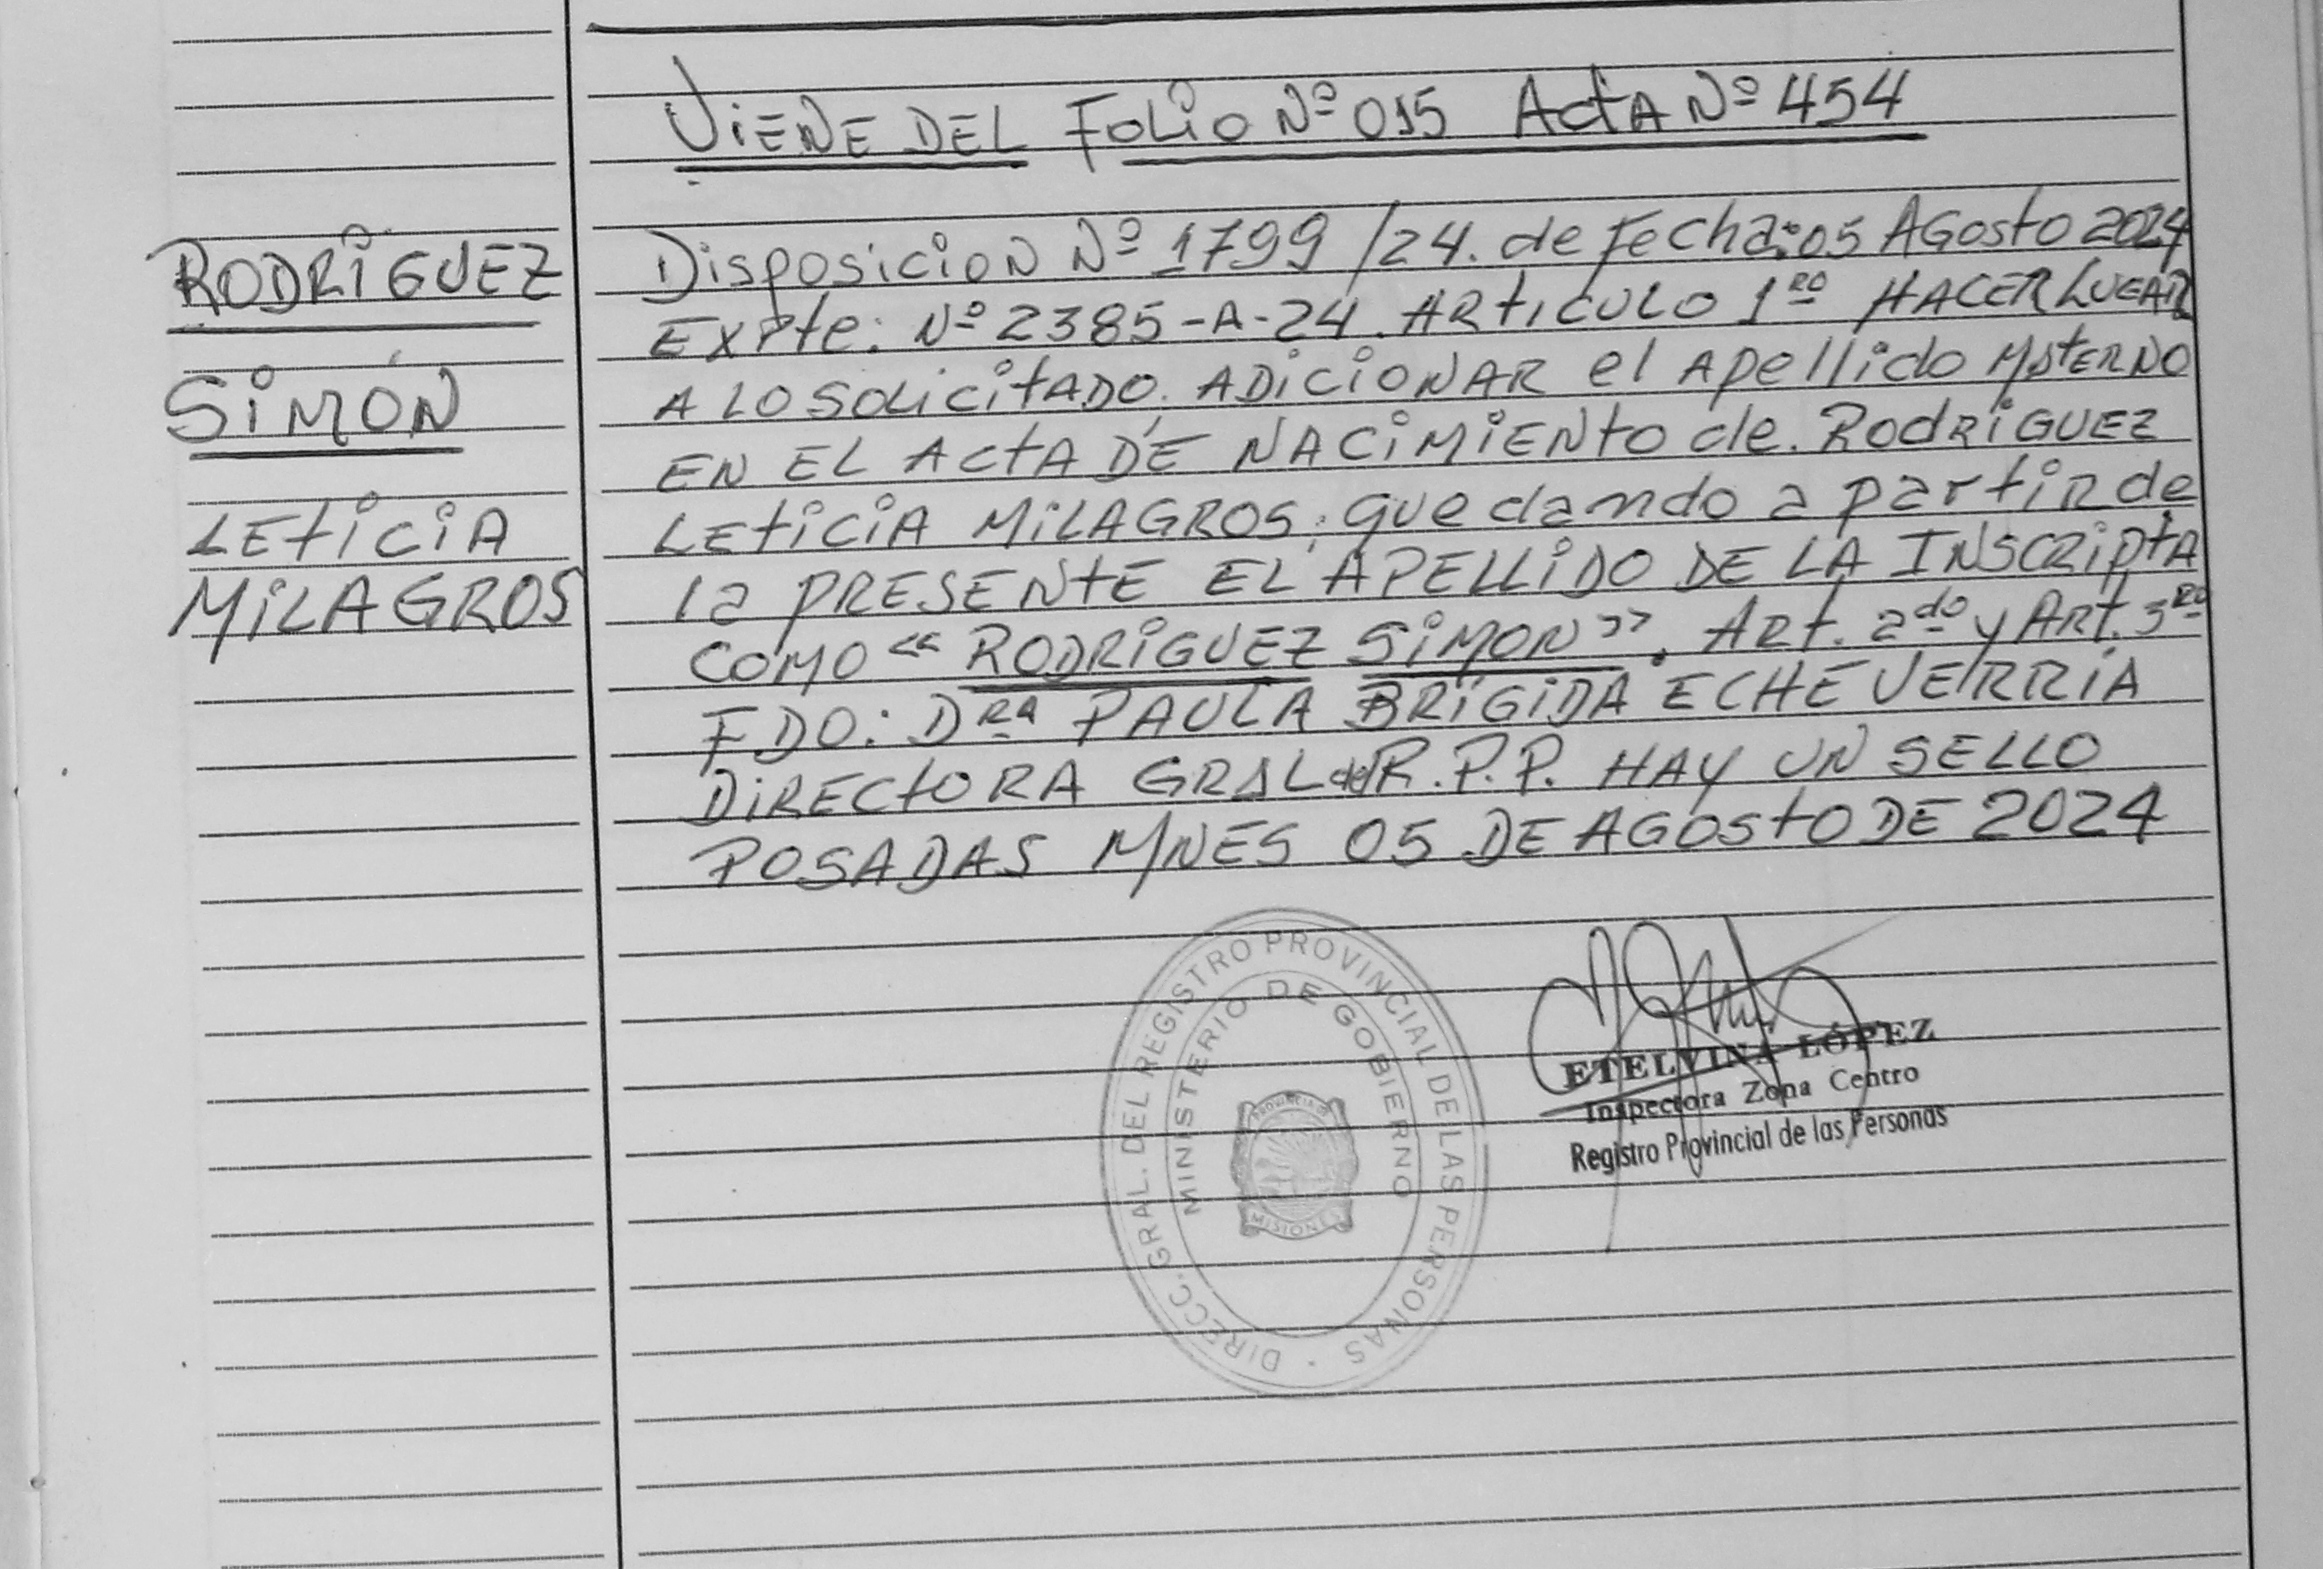 VIENE DEL FOLIO Nº 015 ACTA Nº 454
RODRIGUEZ
SIMÓN
LETICIA
MILAGROS
DISPOSICION Nº 1799/24. de Fecha: 05 AGOSTO 2024
EXPTE: Nº 2385-A-24. ARTICULO 1RO HACER LUGAR
A LO SOLICITADO. ADICIONAR el APELLIDO MATERNO
EN EL ACTA DE NACIMIENTO de. RODRIGUEZ
LETICIA MILAGROS; quedando a partir de
la PRESENTE EL APELLIDO DE LA INSCRIPTA
COMO "RODRIGUEZ SIMON". ART. 2do y ART. 3RO
FDO: DRA PAULA BRIGIDA ECHEVERRÍA
DIRECTORA GRAL del R.P.P. HAY UN SELLO
POSADAS MNES 05 DE AGOSTO DE 2024
DIRECC. GRAL. DEL REGISTRO PROVINCIAL DE LAS PERSONAS
MINISTERIO DE GOBIERNO
PROVINCIA DE
MISIONES
ETELVINA LÓPEZ
Inspectora Zona Centro
Registro Provincial de las Personas